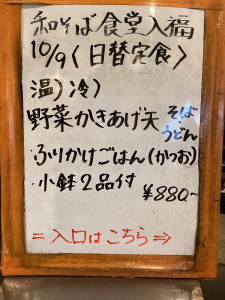 和そば食堂入福
10/9〈日替定食〉
温)冷)
野菜かきあげ天 そば・うどん
・ふりかけごはん(かつお)
・小鉢2品付
¥880～
=入口はこちら⇒